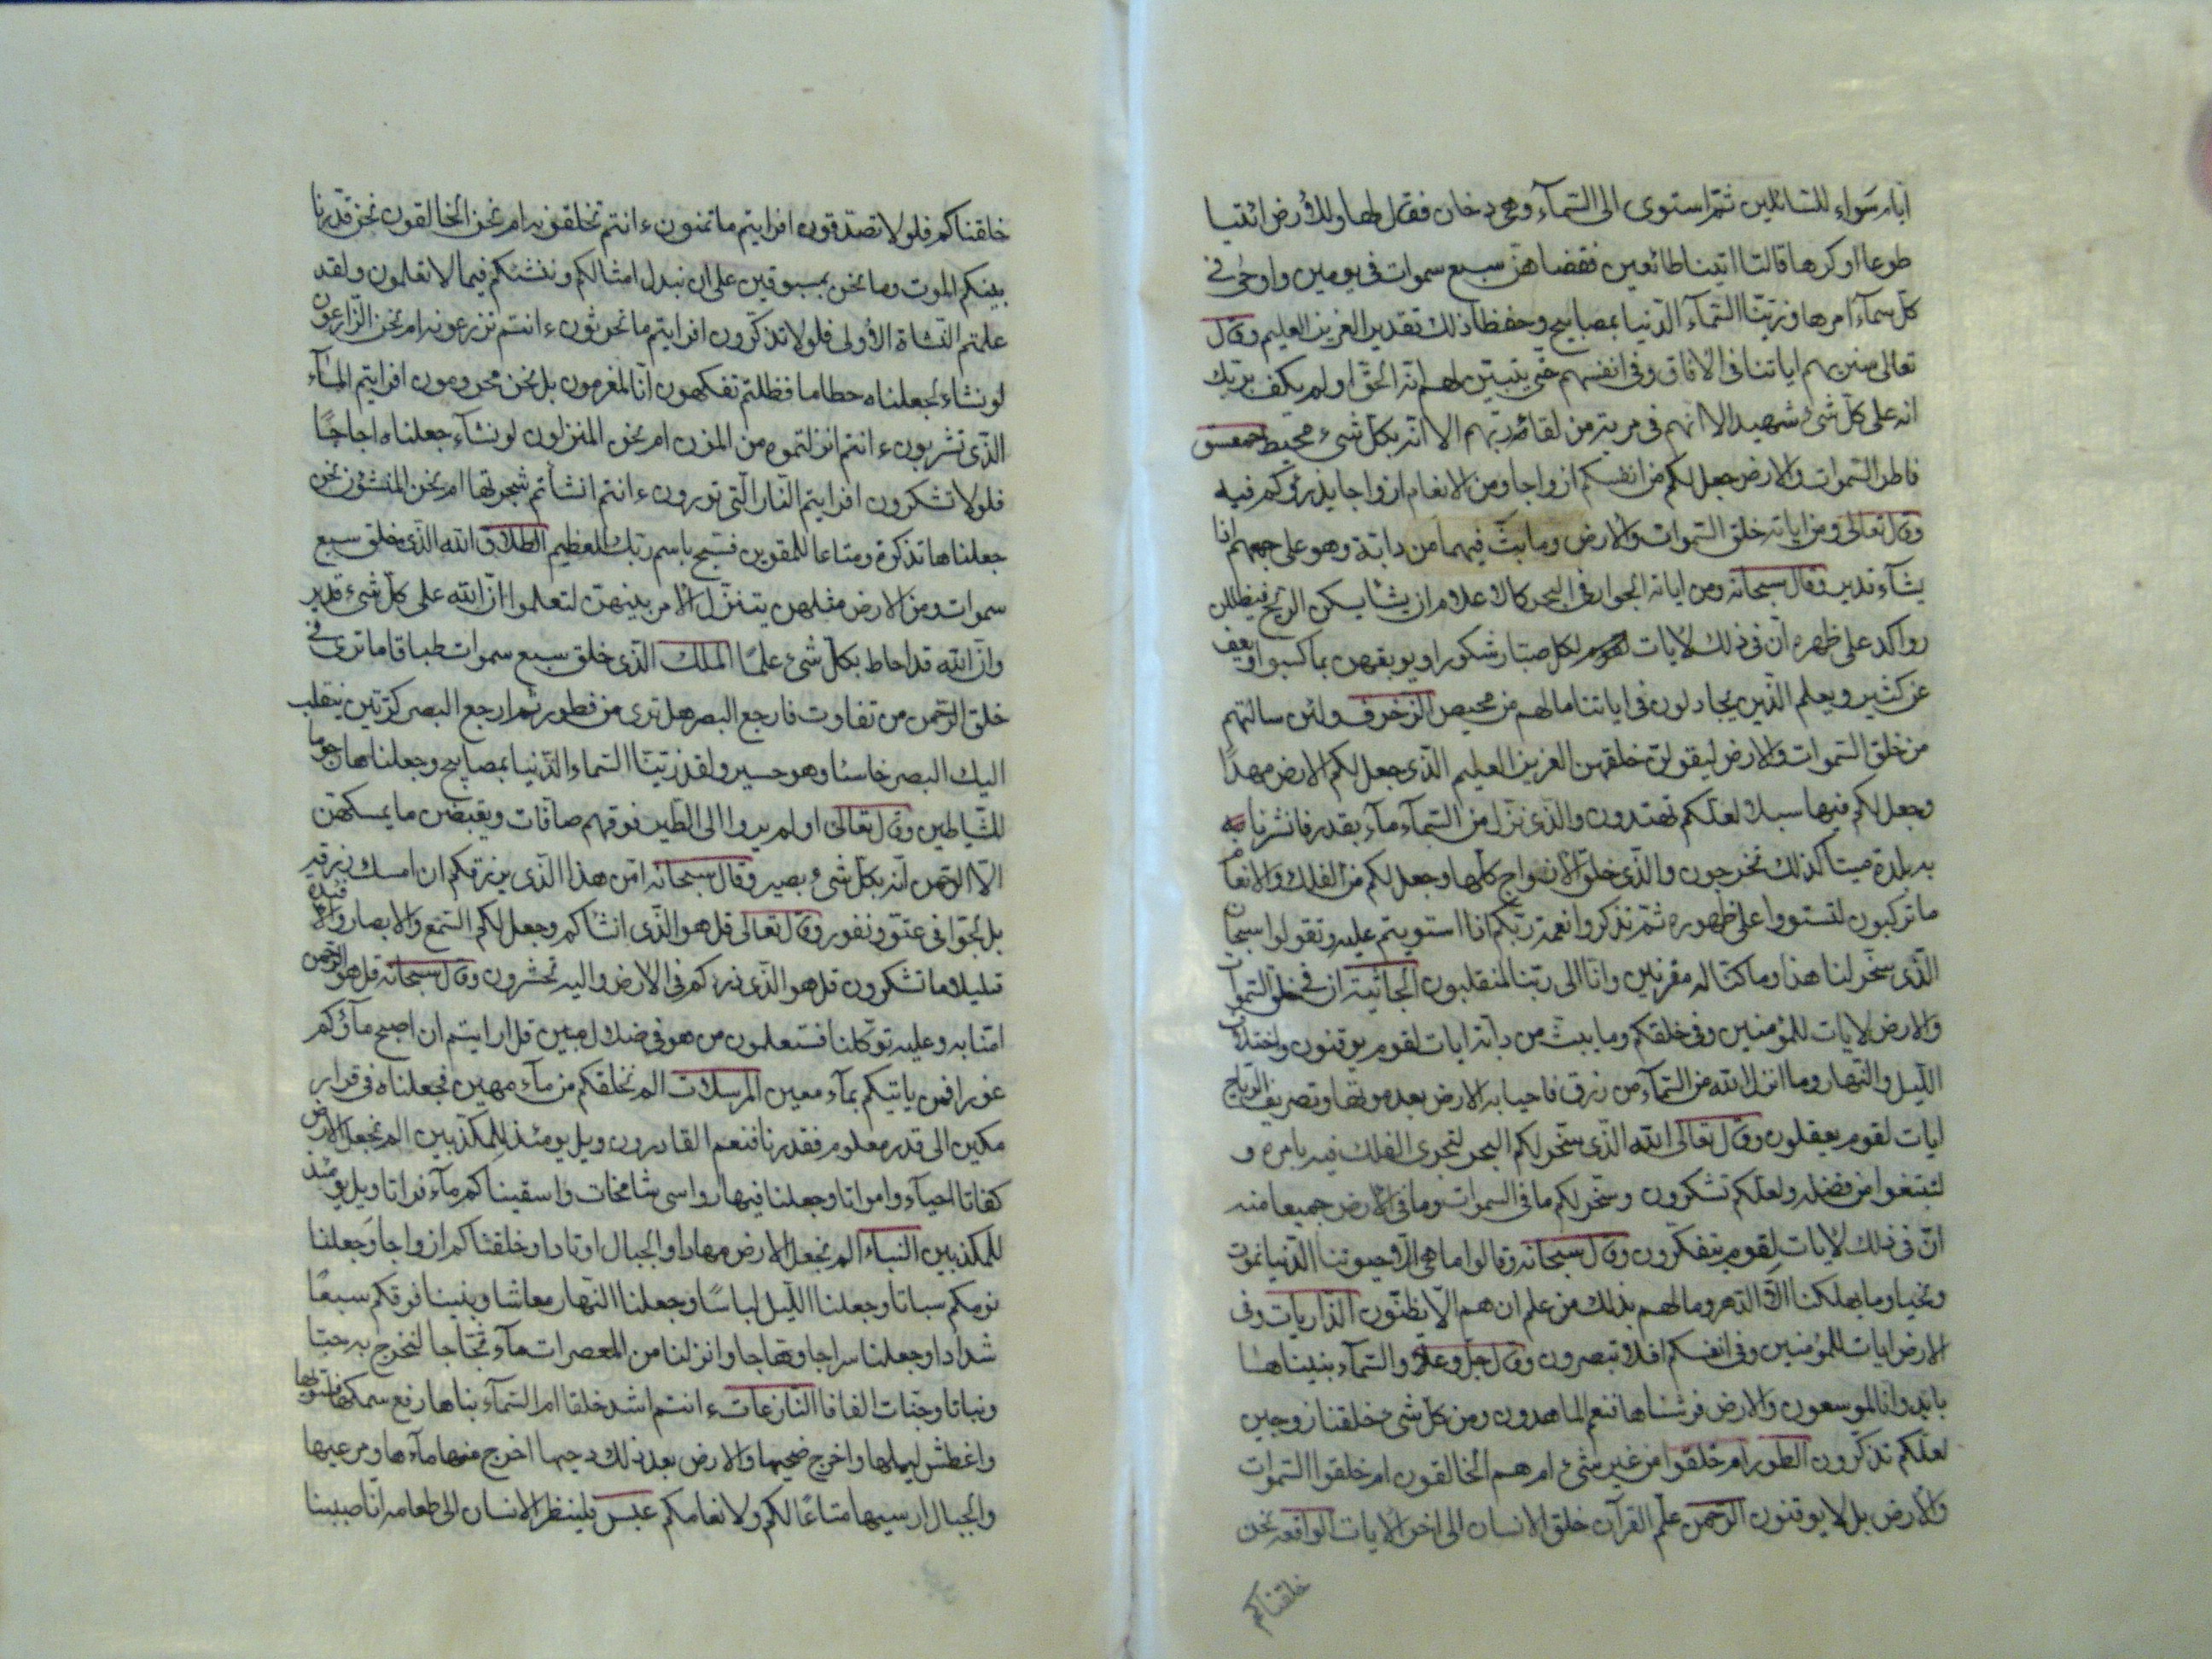 ايام سواء للسائلين ثم استوى الى السمآء وهى دخان فقال لها وللأرض ائتيا
طوعا او كرها قالتا اتينا طائعين فقضاهن سبع سموات فى يومين واوحى فى
كل سمآء امرها وزينا السمآء الدنيا بمصابيح وحفظا ذلك تقدير العزيز العليم وقال
تعالى سنريهم اياتنا فى الافاق وفى انفسهم حتى يتبين لهم انه الحق اولم يكف بربك
انه على كل شئ شهيد الا انهم فى مرية من لقاء ربهم الا انه بكل شئ محيط حمعسق
فاطر السموات والارض جعل لكم من انفسكم ازواجا ومن الانعام ازواجا يذرؤكم فيه
وقال تعالى ومن اياته خلق السموات والارض وما بث فيهما من دابة وهو على جمعهم اذا
يشآء قدير وقال سبحانه ومن اياته الجوار فى البحر كالاعلام ان يشا يسكن الريح فيظللن
رواكد على ظهره ان فى ذلك لايات لكل صبار شكور او يوبقهن بما كسبوا ويعف
عن كثير ويعلم الذين يجادلون فى اياتنا ما لهم من محيص الزخرف ولئن سالتهم
من خلق السموات والارض ليقولن خلقهن العزيز العليم الذى جعل لكم الارض مهدًا
وجعل لكم فيها سبلا لعلكم تهتدون والذى نزل من السمآء مآء بقدر فانشرنا به
به بلدة ميتا كذلك تخرجون والذى خلق الازواج كلها وجعل لكم من الفلك والانعام
ما تركبون لتستووا على ظهوره ثم تذكروا نعمة ربكم اذا استويتم عليه وتقولوا سبحان
الذى سخر لنا هذا وما كنا له مقرنين وانا الى ربنا لمنقلبون الجاثية ان فى خلق السموات
والارض لايات للمؤمنين وفى خلقكم وما يبث من دابة ايات لقوم يوقنون واختلاف
الليل والنهار وما انزل الله من السمآء من رزق فاحيا به الارض بعد موتها وتصريف الرياح
ايات لقوم يعقلون وقال تعالى الله الذى سخر لكم البحر لتجرى الفلك فيه بامره و
لتبتغوا من فضله ولعلكم تشكرون وسخر لكم ما فى السموات وما فى الارض جميعا منه
ان فى ذلك لايات لقوم يتفكرون وقال سبحانه وقالوا ما هى الا حيوتنا الدنيا نموت
ونحيا وما يهلكنا الا الدهر وما لهم بذلك من علم ان هم الا يظنون الذاريات وفى
الارض ايات للمؤمنين وفى انفسكم افلا تبصرون وقال جل وعلا والسمآء بنيناها
بايد وانا لموسعون والارض فرشناها فنعم الماهدون ومن كل شئ خلقنا زوجين
لعلكم تذكرون الطور ام خلقوا من غير شئ ام هم الخالقون ام خلقوا السموات
والأرض بل لا يوقنون الرحمن علم القرآن خلق الانسان الى اخر الايات الواقعه نحن
خلقناكم
خلقناكم فلولا تصدقون افرايتم ما تمنون ءانتم تخلقونه ام نحن الخالقون نحن قدرنا
بينكم الموت وما نحن بمسبوقين على ان نبدل امثالكم وننشئكم فيما لا تعلمون ولقد
علمتم النشاة الأولى فلولا تذكرون افرايتم ما تحرثون ءانتم تزرعونه ام نحن الزارعون
لو نشاء لجعلناه حطاما فظلتم تفكهون انا لمغرمون بل نحن محرومون افرايتم المآء
الذى تشربون ءانتم انزلتموه من المزن ام نحن المنزلون لو نشآء جعلناه اجاجًا
فلولا تشكرون افرايتم النار التى تورون ءانتم انشأتم شجرتها ام نحن المنشؤن نحن
جعلناها تذكرة ومتاعا للمقوين فسبح باسم ربك العظيم الطلاق الله الذى خلق سبع
سموات ومن الارض مثلهن يتنزل الامر بينهن لتعلموا ان الله على كل شئ قدير
وان الله قد احاط بكل شئ علمًا الملك الذى خلق سبع سموات طباقا ما ترى فى
خلق الرحمن من تفاوت فارجع البصر هل ترى من فطور ثم ارجع البصر كرتين ينقلب
اليك البصر خاسئا وهو حسير ولقد زينا السماء الدنيا بمصابيح وجعلناها رجوما
للشياطين وقال تعالى اولم يروا الى الطير فوقهم صافات ويقبضن ما يمسكهن
الا الرحمن انه بكل شئ بصير وقال سبحانه امن هذا الذى يرزقكم ان امسك رزقه
بل لجوا فى عتو ونفور وقال تعالى قل هو الذى انشاكم وجعل لكم السمع والابصار والافئدة
قليلا ما تشكرون قل هو الذى ذرءكم فى الارض واليه تحشرون وقال سبحانه قل هو الرحمن
امنا به وعليه توكلنا فستعلمون من هو فى ضلال مبين قل ارايتم ان اصبح مآؤكم
غورا فمن ياتيكم بمآء معين المرسلات الم نخلقكم من مآء مهين فجعلناه فى قرار
مكين الى قدر معلوم فقدرنا فنعم القادرون ويل يومئذ للمكذبين الم نجعل الارض
كفاتا احيآء وامواتا وجعلنا فيها رواسى شامخات واسقيناكم مآء فراتا ويل يومئذ
للمكذبين النباء الم نجعل الارض مهادا والجبال اوتادا وخلقناكم ازواجا وجعلنا
نومكم سباتا وجعلنا الليل لباسًا وجعلنا النهار معاشا وبنينا فوقكم سبعًا
شدادا وجعلنا سراجا وهاجا وانزلنا من المعصرات مآء ثجاجا لنخرج به حبا
ونباتا وجنات الفافا النازعات ءانتم اشد خلقا ام السمآء بناها رفع سمكها فسويها
واغطش ليلها واخرج ضحيها والارض بعد ذلك دحيها اخرج منها مآءها ومرعيها
والجبال ارسيها متاعًا لكم ولانعامكم عبس فلينظر الانسان الى طعامه انا صببنا